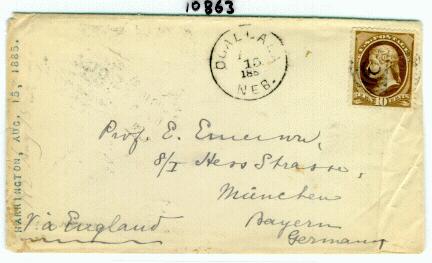 10863
OGALLALA
15
188
NEB.
POSTAGE
10
HARRINGTON, AUG. 15, 1885.
Prof. E. Emerson,
8/I Hess Strasse,
München
Via England
Bayern
Germany